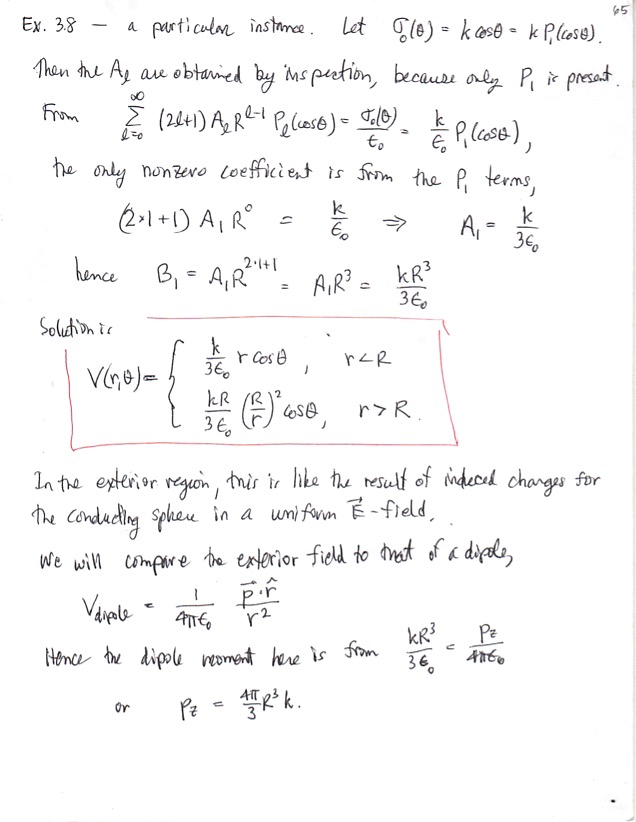 65
Ex. 3.8 — a particular instance. Let σ₀(θ) = k cosθ = k P₁(cosθ).
Then the Aℓ are obtained by inspection, because only P₁ is present.
From ∞∑ℓ=0 (2ℓ+1) Aℓ R^ℓ-1 Pℓ(cosθ) = σ₀(θ)/ε₀ = k/ε₀ P₁(cosθ),
the only nonzero coefficient is from the P₁ terms,
(2×1+1) A₁ R⁰ = k/ε₀ ⇒ A₁ = k/3ε₀
hence B₁ = A₁R^2·1+1 = A₁R³ = kR³/3ε₀
Solution is
V(r,θ) = { k/3ε₀ r cosθ, r<R
kR/3ε₀ (R/r)² cosθ, r>R.
In the exterior region, this is like the result of induced charges for
the conducting sphere in a uniform E⃗-field.
We will compare the exterior field to that of a dipole,
Vdipole = 1/4πε₀ p⃗·r̂/r²
Hence the dipole moment here is from kR³/3ε₀ = Pz/4πε₀
or Pz = 4π/3 R³k.